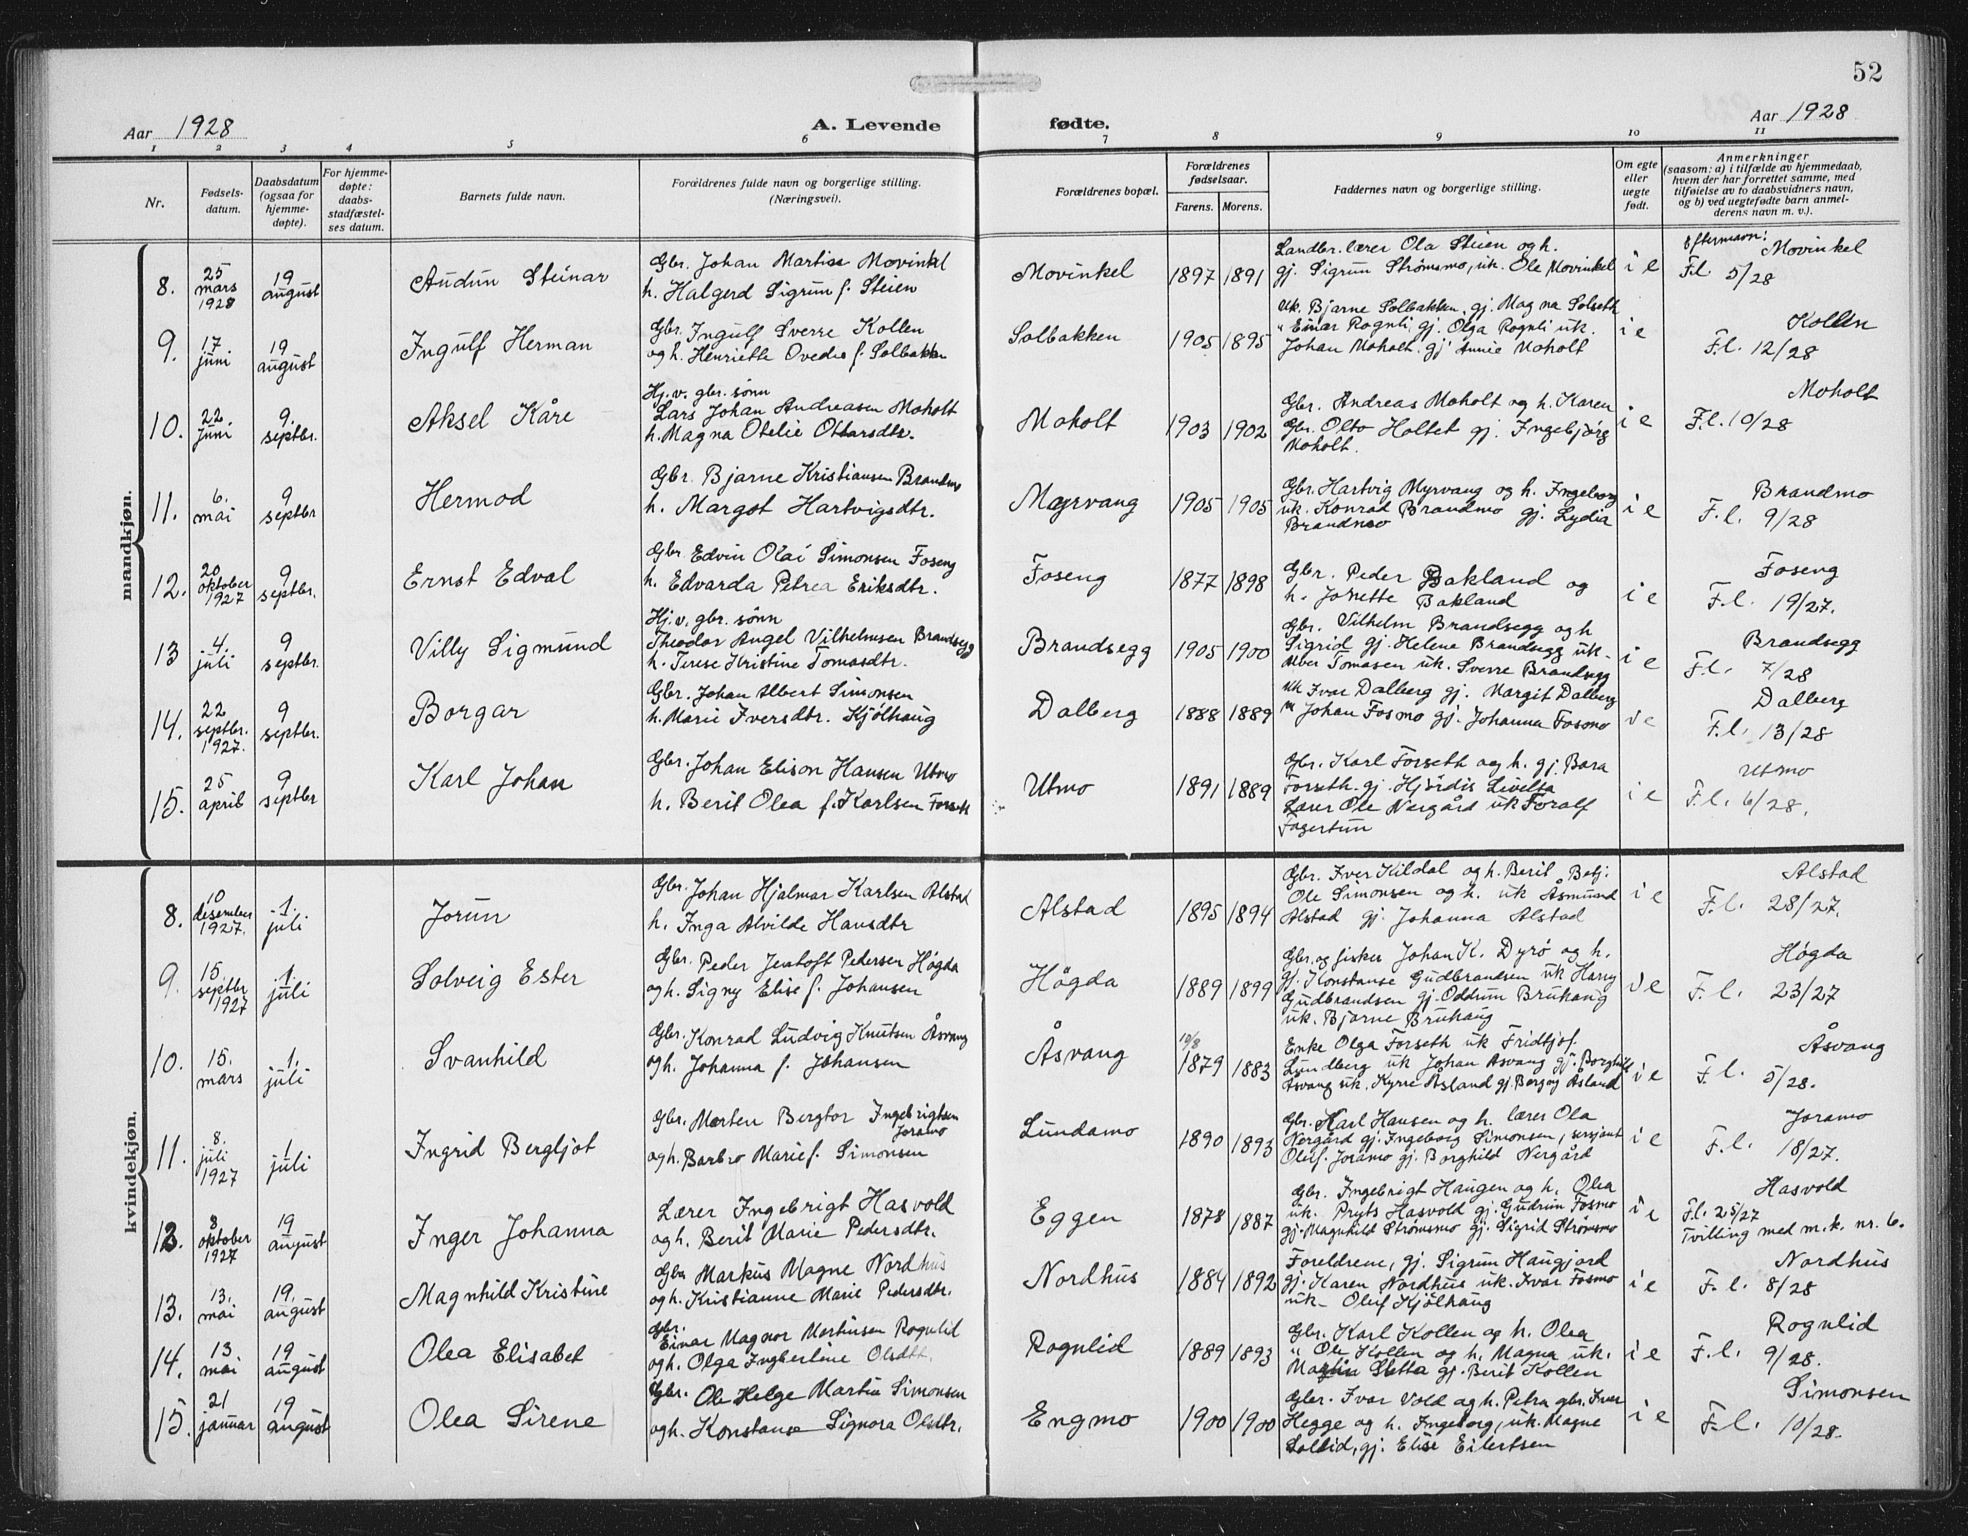 52
Aar 1928
A. Levende fødte.
Aar 1928
1 2 3 4 5 6 7 8 9 10 11
Nr.
Fødsels-
datum.
Daabsdatum
(ogsaa for
hjemme-
døpte).
For hjemme-
døpte:
daabs-
stadfæstel-
ses datum.
Barnets fulde navn.
Forældrenes fulde navn og borgerlige stilling.
(Næringsvei).
Forældrenes bopæl.
Forældrenes
fødselsaar.
Farens. Morens.
Faddernes navn og borgerlige stilling.
Om egte
eller
uegte
født.
Anmerkninger
(saasom: a) i tilfælde av hjemmedaab,
hvem der har forrettet samme, med
tilføielse av to daabsvidners navn,
og b) ved uegtefødte barn anmel-
derens navn m. v.).
mandkjøn.
8.
25
mars
1928
19
august
Audun Steinar
Gbr. Johan Martise Movinkel
h. Halgerd Sigrun f. Steien
Movinkel
1897 1891
Landbr. lærer Ola Steien og h.
gj. Sigrun Strømsmo, uk. Ole Movinkel
i e
Efternavn: Movinkel
F.l. 5/28
9.
17
juni
19
august
Ingulf Herman
Gbr. Ingulf Sverre Kollen
og h. Henriette Ovedie f. Solbakken
Solbakken
1905 1895
Uk. Bjarne Solbakken, gj. Magna Solseth
" Einar Rognli, gj. Olga Rognli uk.
Johan Moholt. gj. Annie Moholt
i e
Kollen
F.l. 12/28
10.
22
juni
9.
septbr.
Aksel Kåre
Hj.v. gbr. sønn
Lars Johan Andreasen Moholt
h. Magna Otelie Ottarsdtr.
Moholt
1903 1902
Gbr. Andreas Moholt og h. Karen
Gbr. Otto Holtet gj. Ingebjørg
Moholt.
i e
Moholt
F.l. 10/28
11.
6.
mai
9
septbr
Hermod
Gbr Bjarne Kristiansen Brandmo
h. Margot Hartvigsdtr.
Myrvang
1905 1905
Gbr. Hartvig Myrvang og h. Ingeborg
uk. Konrad Brandmo gj. Lydia
Brandmo
i e
Brandmo
F.l. 9/28
12.
20
oktober
1927
9
septbr.
Ernst Edval
Gbr. Edvin Olai Simonsen Foseng
h. Edvarda Petrea Eriksdtr.
Foseng
1877 1898
Gbr. Peder Bakland og
h. Jonette Bakland
i e
Foseng
F.l. 19/27.
13
4.
juli
9
septbr.
Villy Sigmund
Hj.v. gbr. sønn
Theodor Angel Vilhelmsen Brandsegg
h. Terese Kristine Tomasdtr.
Brandsegg
1905 1900
Gbr. Vilhelm Brandsegg og h
Sigrid gj. Helene Brandsegg uk.
Tomasen uk. Sverre Brandsegg
i e
Brandsegg
F.l. 7/28
14.
22
septbr.
1927.
9
septbr.
Borgar
Gbr. Johan Albert Simonsen
h. Marie Iversdtr. Kjølhaug
Dalberg
1888 1889
Uk Ivar Dalberg gj. Margit Dalberg
" Johan Fosmo gj. Johanna Fosmo
i e
Dalberg
F.l. 13/28
15.
25
april
9
septbr
Karl Johan
Gbr. Johan Elison Hansen Utmo
h. Berit Olea f. Karlsen Forseth
Utmo
1891 1889
Gbr. Karl Forseth og h. gj. Bara
Forseth. gj. Hjördis
Lærer Ole Nergård uk Toralf
Fagertun
i e
Utmo
F.l. 6/28.
kvindekjøn.
8.
10
desember
1927.
1.
juli
Jorun
Gbr. Johan Hjalmar Karlsen Alstad
h. Inga Alvilde Hansdtr
Alstad
1895 1894
Gbr. Iver Kildal og h. Berit Betj.
Ole Simonsen og h. uk Åsmund
Alstad gj. Johanna Alstad
i e
Alstad
F.l. 28/27.
9.
15.
septbr
1927
1.
juli
Solveig Ester
Gbr. Peder Jentoft Pedersen Høgda
og h. Signy Elise f. Johansen
Høgda
1889 1899
Gbr. og fisker Johan K. Dyrø og h.
gj. Konstanse Gudbrandsen uk Harry
Gudbrandsen gj. Oddrun Bruhaug
uk. Bjarne Bruhaug
i e
Høgda
F.l. 23/27
10.
15.
mars
1.
juli
Svanhild
Gbr. Konrad Ludvig Knutsen Åsvang
og h. Johanna f. Johansen
Åsvang
10/8
1879 1883
Enke Olga Forseth uk Fridtjof
Lundberg uk Johan Åsvang gj. Borghild
Åsvang uk. Kyrre Åsland gj. Bergoy Åsland
i e
Åsvang
F.l. 5/28.
11.
8.
juli
1927
1.
juli
Ingrid Bergljot
Gbr. Morten Bergtor Ingebrigtsen
Joramo
og h. Barbro Marie f. Simonsen
Lundamo
1890 1893
Gbr. Karl Hansen og h. lærer Ola
Nergård gj. Ingeborg Simonsen, sersjant
Oluf. Joramo gj. Borghild Nergård
i e
Joramo
F.l. 18/27.
12.
8.
oktober
1927
19
august
Inger Johanna
Lærer Ingebrigt Hasvold
og h. Berit Marie Pedersdtr.
Eggen
1878 1887
Gbr. Ingebrigt Haugen og h. Olea
uk. Pryts Hasvold gj. Gudrun Fosmo
gj. Magnhild Strømsmo gj. Sigrid Strømsmo
i e
Hasvold
F.l. 25/27
Tvilling med m.k. nr. 6.
13.
13.
mai
19.
august
Magnhild Kristine
Gbr Markus Magne Nordhus
og h. Kristianne Marie Pedersdtr.
Nordhus
1884 1892
Foreldrene, gj. Sigrun Haugjord
gj. Karen Nordhus uk. Ivar Fosmo
uk. Oluf Kjølhaug
i e
Nordhus
F.l. 8/28
14.
13
mai
19
august
Olea Elisabet
Gbr.
Einar Magnor Martinsen Rognlid
og h. Olga Ingberline Olsdtr.
Rognlid
1889 1893
Gbr. Karl Kollen og h. Olea
" Ole Kollen og h. Magna uk.
Martin Sletta gj. Berit Kollen
i e
Rognlid
F.l. 9/28.
15.
21
januar
19
august
Olea Sirene
Gbr. Ole Helge Martin Simonsen
og h. Konstanse Signora Olsdtr.
Engmo
1900 1900
Gbr. Ivar Vold og h. Petra gbr. Iver
Hegge og h. Ingeborg, uk. Magne
Sollid, gj. Elise Eilertsen
i e
Simonsen
F.l. 10/28.